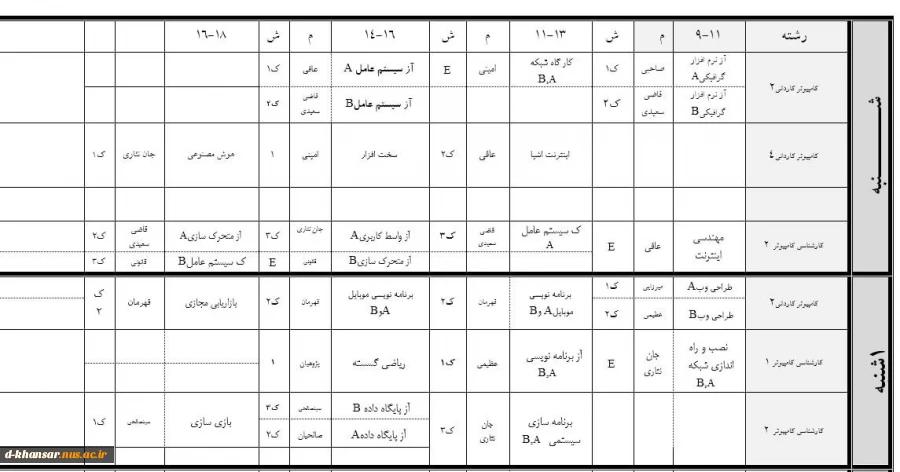 رشته ۹-۱۱ م ش ۱۱-۱۳ م ش ۱۴-۱۶ م ش ۱۶-۱۸
شنبه
کامپیوتر کاردانی ۲
آز نرم افزار
گرافیکی A
صاحبی
ک۱
کارگاه شبکه
B,A
امینی
E
آز سیستم عامل A
عاقی
ک۱
آز نرم افزار
گرافیکی B
قاضی
سعیدی
ک۲
آز سیستم عامل B
قاضی
سعیدی
ک۲
کامپیوتر کاردانی ٤
اینترنت اشیا
عاقی
ک۲
سخت افزار
امینی
۱
هوش مصنوعی
جان نثاری
ک۱
کارشناسی کامپیوتر ۲
مهندسی
اینترنت
عاقی
E
ک سیستم عامل
A
قاضی
سعیدی
ک۳
آز واسط کاربری A
جان نثاری
ک۳
آز متحرک سازی A
قاضی
سعیدی
ک۲
آز متحرک سازی B
قانونی
E
ک سیستم عامل B
قانونی
ک۳
۱شنبه
کامپیوتر کاردانی ۲
طراحی وب A
میرزایی
ک۱
برنامه نویسی
موبایل A و B
قهرمان
ک۲
برنامه نویسی موبایل
A و B
قهرمان
ک۲
بازاریابی مجازی
قهرمان
ک
۲
طراحی وب B
عظیمی
ک۲
کارشناسی کامپیوتر ۱
نصب و راه
اندازی شبکه
B,A
جان
نثاری
E
آز برنامه نویسی
B,A
عظیمی
ک۱
ریاضی گسسته
پژوهیان
۱
کارشناسی کامپیوتر ۲
برنامه سازی
سیستمی B,A
جان
نثاری
ک۳
آز پایگاه داده B
ک۳
بازی سازی
ک۱
آز پایگاه داده A
صالحیان
ک۲
d-khansar.nus.ac.ir